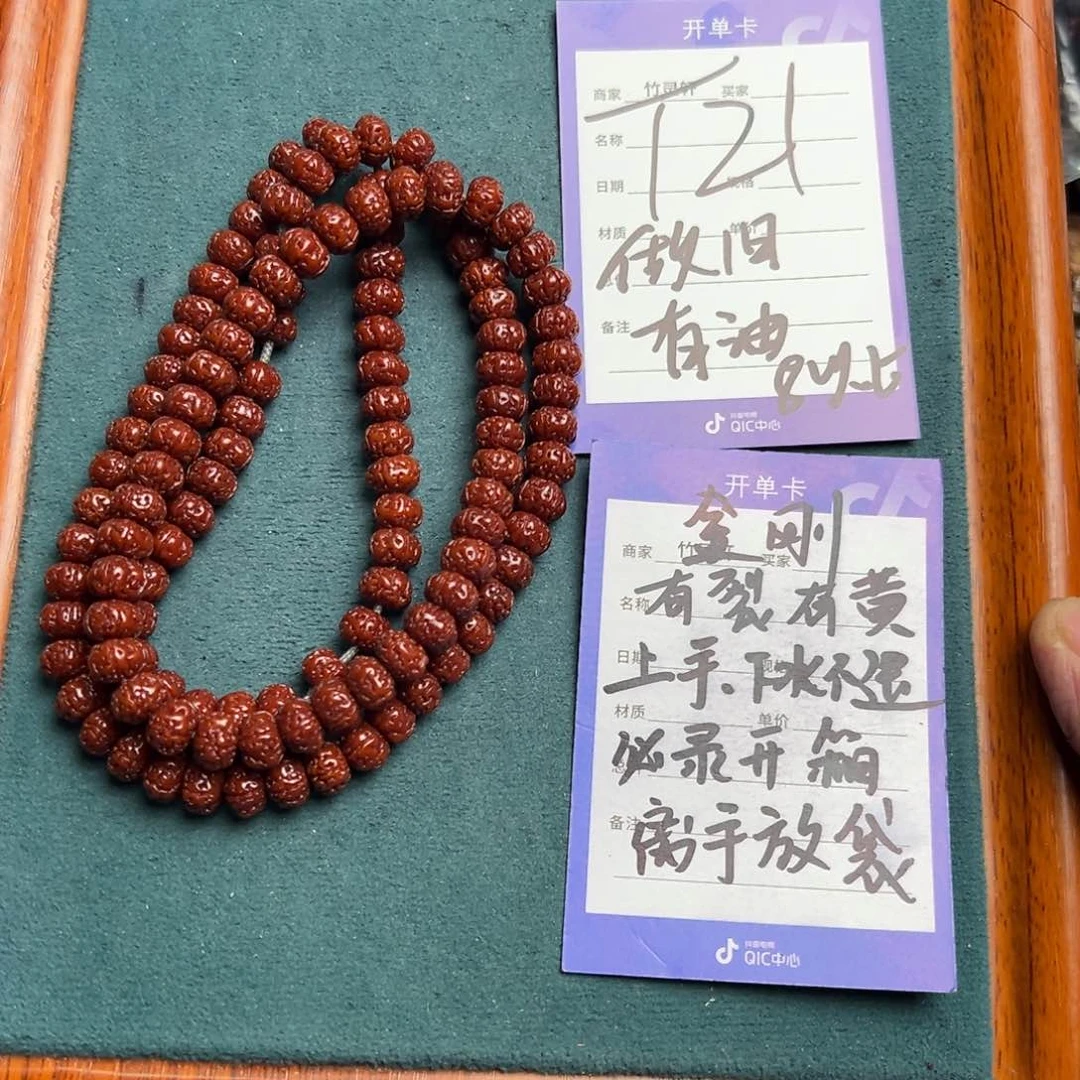 开单卡
商家 竹灵轩 买家
T21
名称
日期 规格
材质 单价
做旧
备注 有油
8以上
抖音电商
QIC中心
开单卡
金刚
商家 竹 轩 买家
名称 有裂有黄
日期 规格
上手、下水不退
材质 单价
必录开箱
备注 离手放袋
抖音电商
QIC中心